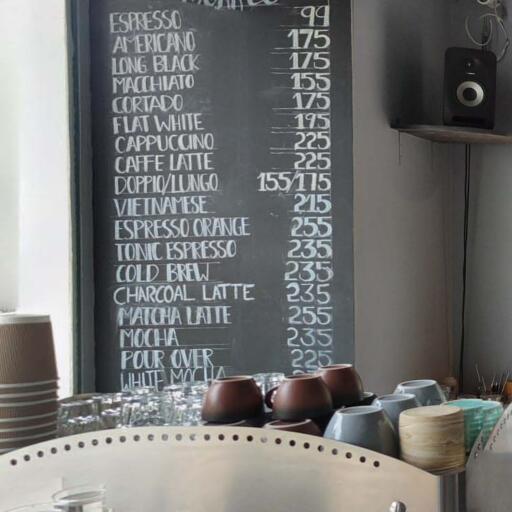 ESPRESSO 99
AMERICANO 175
LONG BLACK 175
MACCHIATO 155
CORTADO 175
FLAT WHITE 195
CAPPUCCINO 225
CAFFE LATTE 225
DOPPIO/LUNGO 155/175
VIETNAMESE 215
ESPRESSO ORANGE 255
TONIC ESPRESSO 235
COLD BREW 235
CHARCOAL LATTE 235
MATCHA LATTE 255
MOCHA 235
POUR OVER 225
WHITE MOCHA